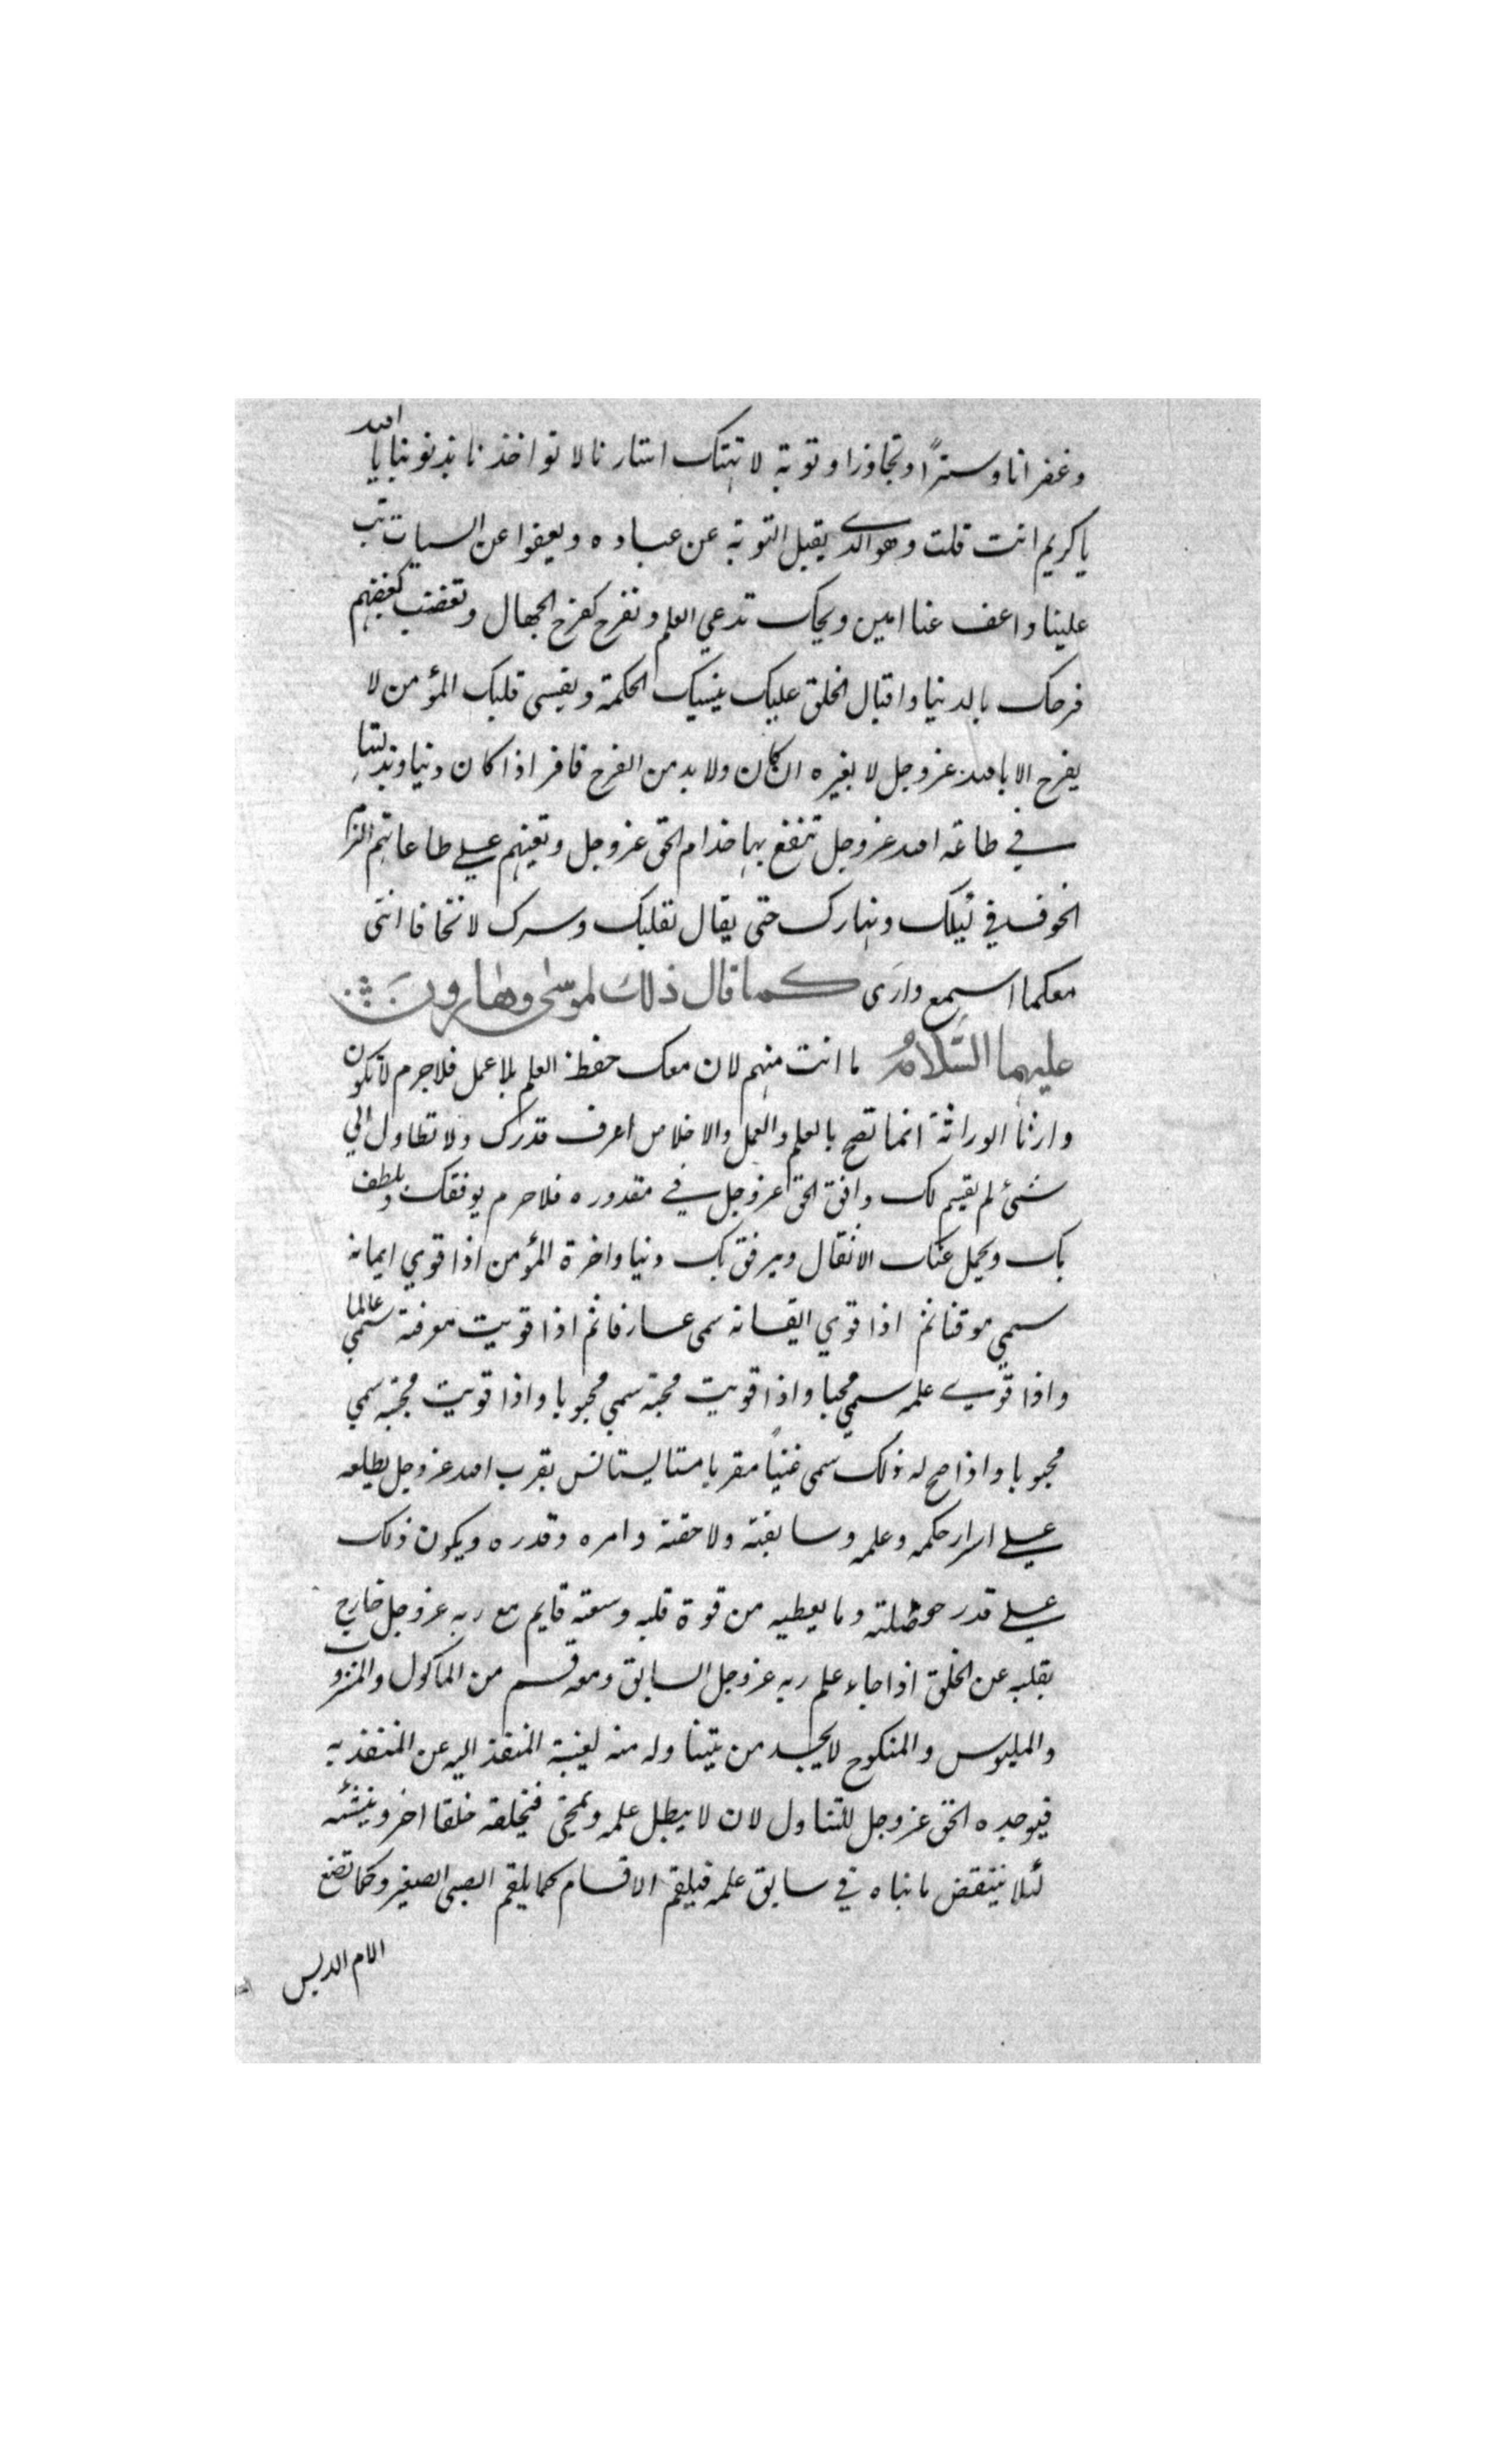 وغفرانا وسترًا وتجاوزا وتوبة لا تهتك استارنا لا تواخذنا بذنوبنا يا الله
يا كريم انت قلت وهو الذي يقبل التوبة عن عباده ويعفوا عن السيات تب
علينا واعف عنا امين ويحك تدعي العلم وتفرح كفرح الجهال وتغضب كغضبهم
فرحك بالدنيا واقبال الخلق عليك ينسيك الحكمة ويقسى قلبك المؤمن لا
يفرح الا بالله عزوجل لا بغيره ان كان ولا بد من الفرح فافر اذا كان دنيا وبذلتها
في طاعة الله عزوجل تنفع بها خدام الحق عزوجل وتعينهم على طاعاتهم الزم
الخوف في ليلك ونهارك حتى يقال لقلبك وسرك لا تخافا انني
معكما اسمع وارى كما قال ذلك لموسى وهارون
عليهما السلام ما انت منهم لان معك حفظ العلم بلا عمل فلاجرم لا تكون
وارثا الوراثة انما تصح بالعلم والعمل والاخلاص اعرف قدرك ولا تطاول الي
شئ لم يقسم لك وافق الحق عزوجل في مقدوره فلا جرم يوفقك ويلطف
بك ويحمل عنك الاثقال ويرفق بك دنيا واخرة المؤمن اذا قوي ايمانه
سمي موقنا ثم اذا قوي ايقانه سمى عارفا ثم اذا قويت معرفته سمي عالما
واذا قوي علمه سمي محبا واذا قويت محبته سمي محبوبا واذا قويت محبته سمي
محبوبا واذا صح له ذلك سمى غنيًا مقربا مستانسا يستانس بقرب الله عزوجل يطلعه
على اسرار حكمه وعلمه وسابقته ولاحقته وامره وقدره ويكون ذلك
على قدر حوصلته وما يعطيه من قوة قلبه وسعته قايم مع ربه عزوجل خارج
بقلبه عن الخلق اذا جاء علم ربه عزوجل السابق ومعه قسم من الماكول والمشروب
والملبوس والمنكوح لا يجد من يتناوله منه لغيبة المنفذ اليه عن المنفذ به
فيوجده الحق عزوجل للتناول لان لا يبطل علمه ويمحى فيخلقه خلقا اخر وينشئه
لئلا ينتقض ما بناه في سابق علمه فيلقم الاقسام كما يلقم الصبي الصغير وكما تضع
الام الدبس